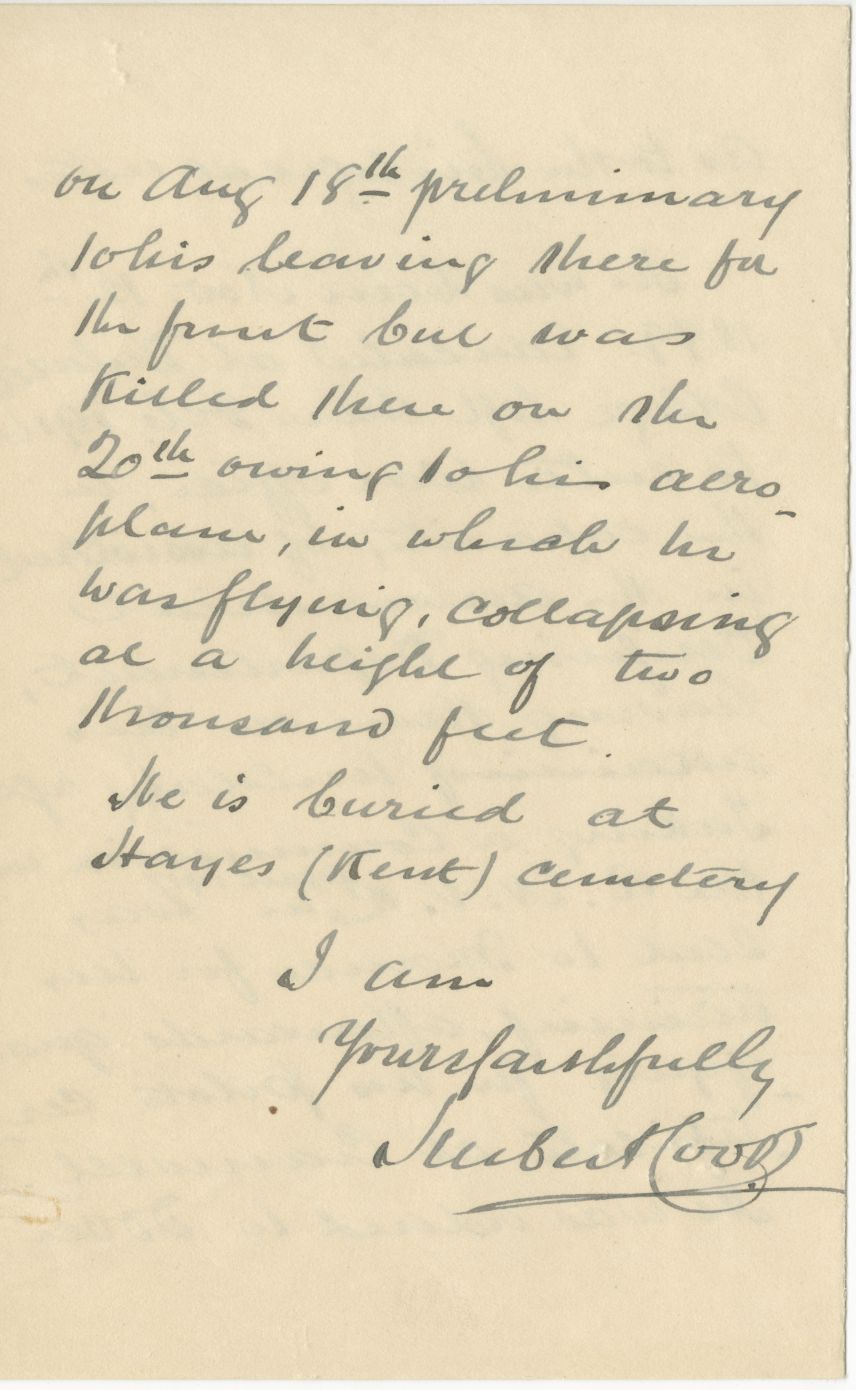 on Aug 18th preliminary
to his leaving there for
the front but was
killed there on the
20th owing to his aero-
plane, in which he
was flying, collapsing
at a height of two
thousand feet.
He is buried at
Hayes (Kent) cemetery
I am
Yours faithfully
Herbert Cook